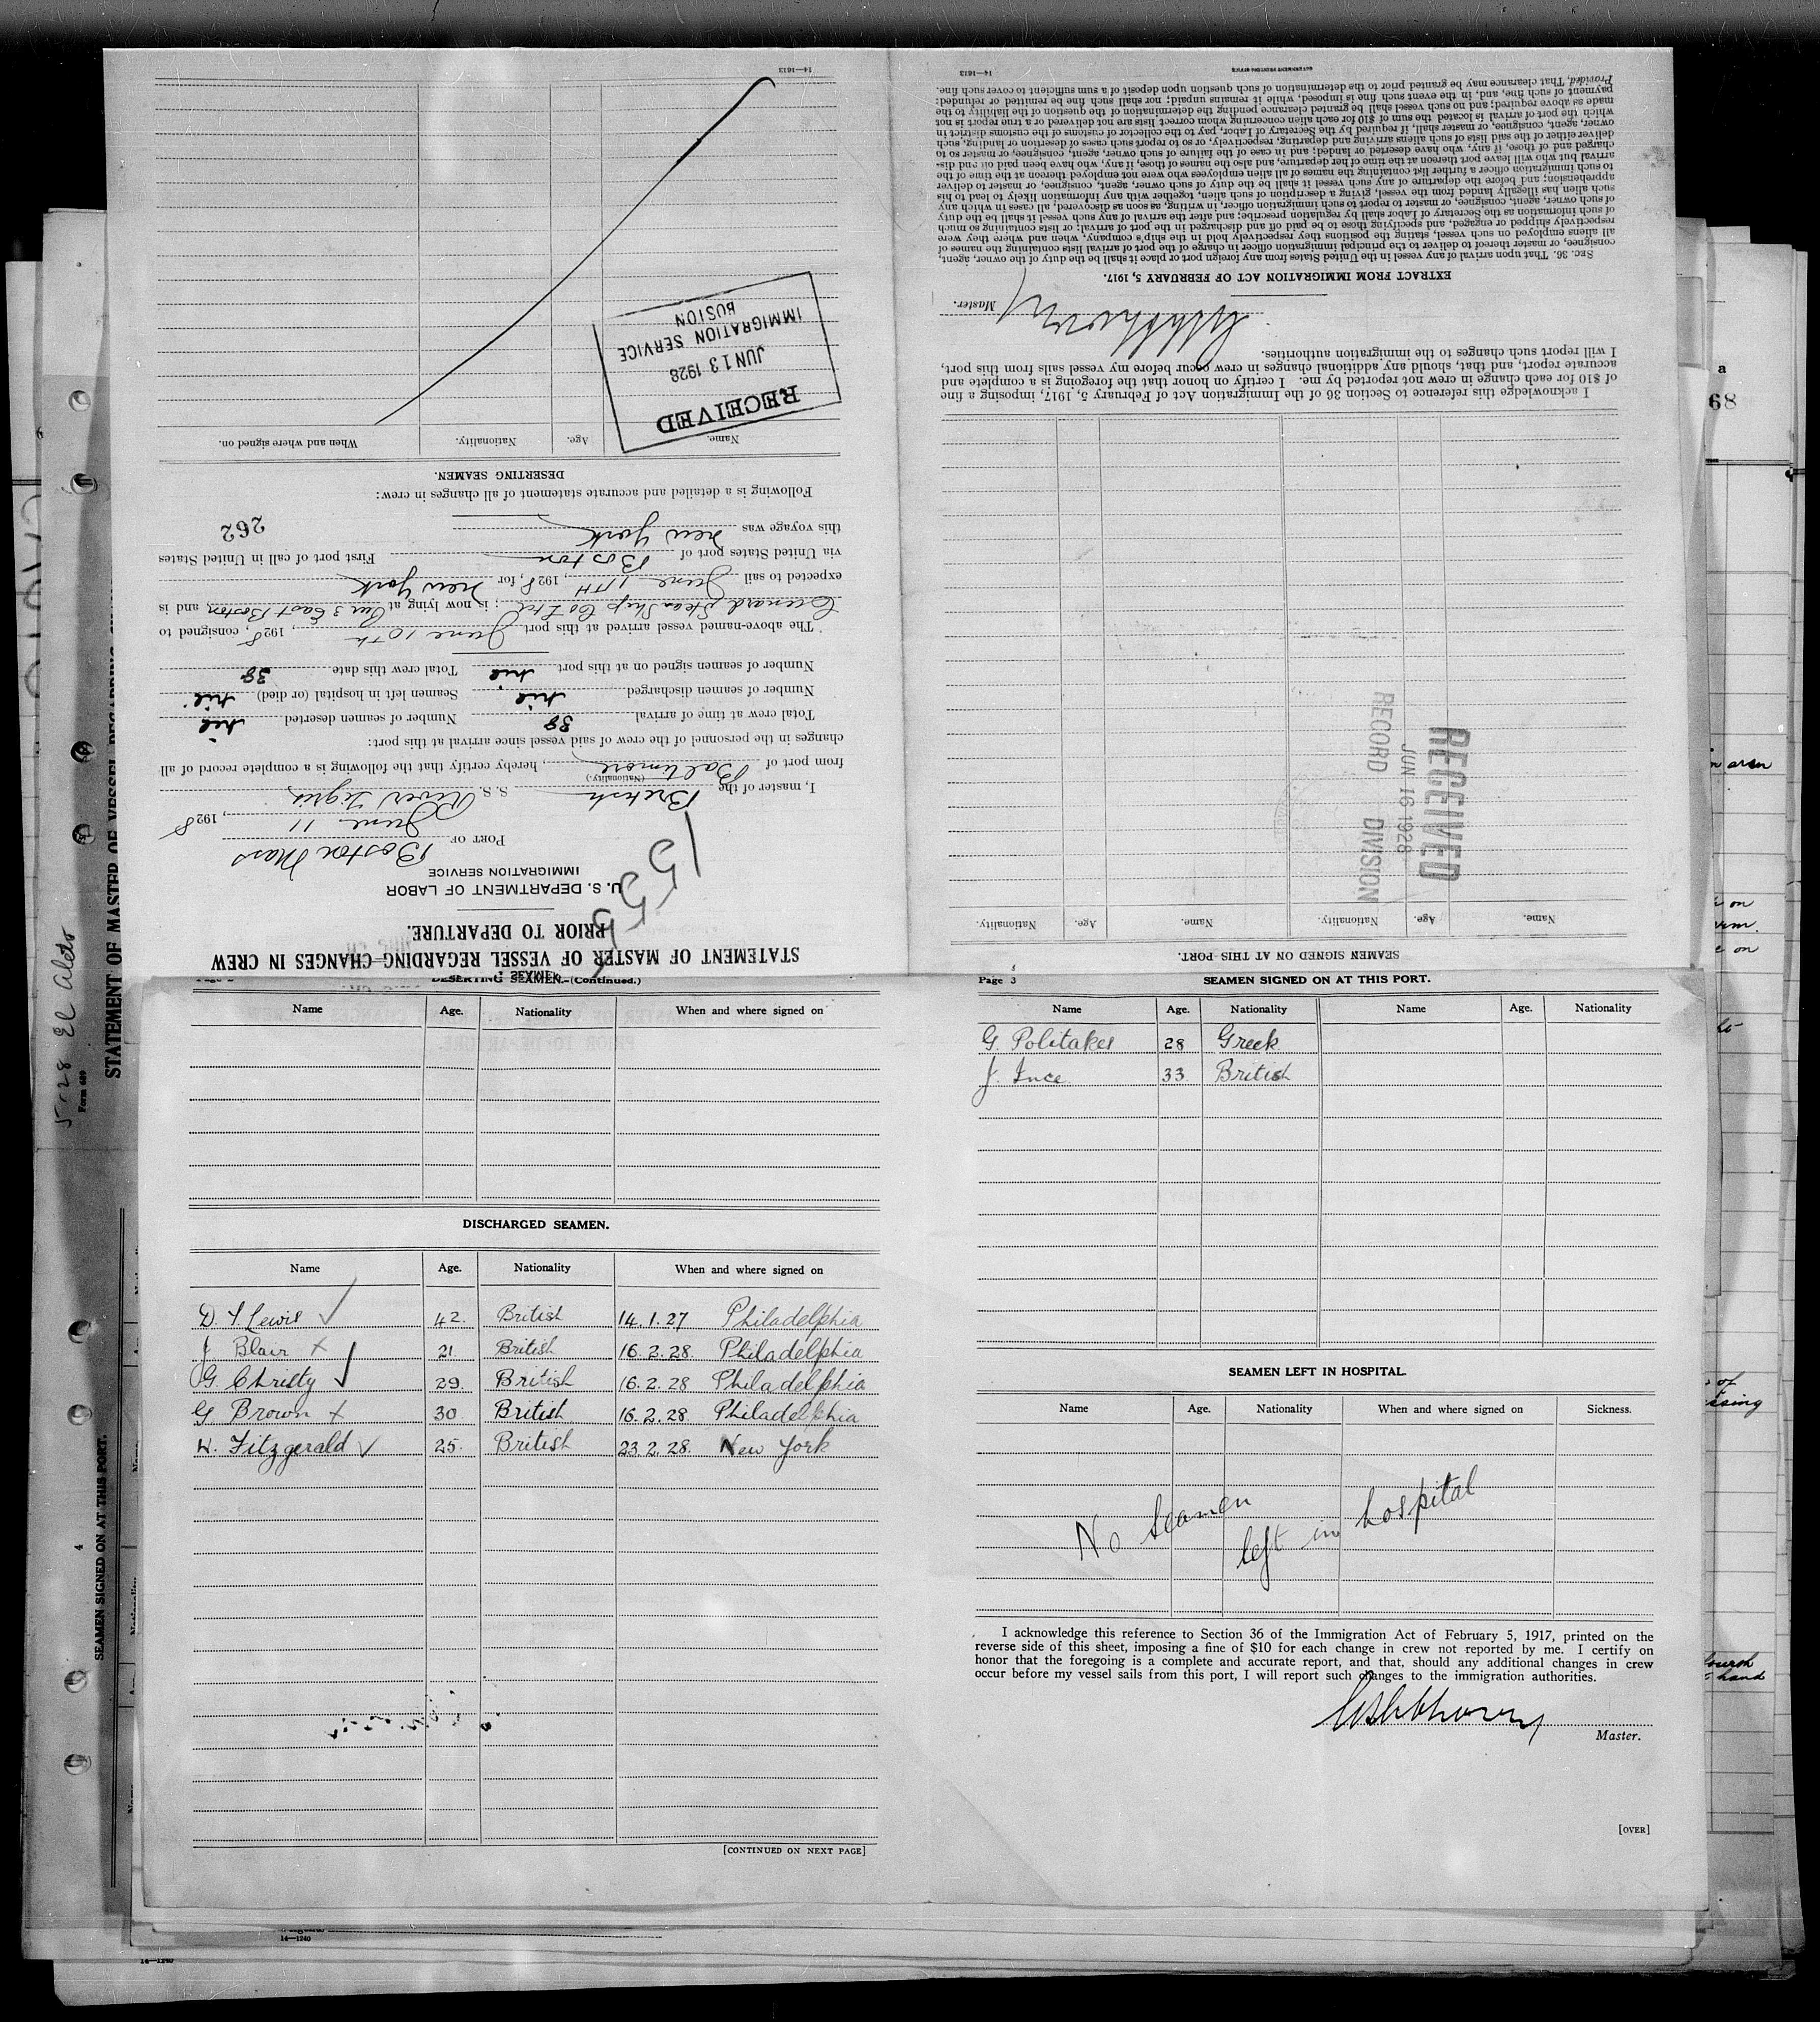 STATEMENT OF MASTER OF VESSEL REGARDING CHANGES IN CREW
PRIOR TO DEPARTURE.
U. S. DEPARTMENT OF LABOR
IMMIGRATION SERVICE
1555
PORT OF Boston Mass
June 11, 1928
I, master of the British S. S. River Tigris,
(Nationality)
from port of Baltimore, hereby certify that the following is a complete record of all
changes in the personnel of the crew of said vessel since arrival at this port:
Total crew at time of arrival 38 Number of seamen deserted nil
Number of seamen discharged nil Seamen left in hospital (or died) nil
Number of seamen signed on at this port nil Total crew this date 38
The above-named vessel arrived at this port June 10th, 1928, consigned to
Cunard Steam Ship Co Ltd; is now lying at Pier 3 East Boston, and is
expected to sail June 11TH, 1928, for New York
via United States port of Boston First port of call in United States
this voyage was New York
262
Following is a detailed and accurate statement of all changes in crew:
DESERTING SEAMEN.
Name. Age. Nationality. When and where signed on.
RECEIVED
JUN 13 1928
IMMIGRATION SERVICE
BOSTON
14—1613
SEAMEN SIGNED ON AT THIS PORT.
Name. Age. Nationality. Name. Age. Nationality.
RECEIVED
JUN 16 1928
RECORD DIVISION
I acknowledge this reference to Section 36 of the Immigration Act of February 5, 1917, imposing a fine
of $10 for each change in crew not reported by me. I certify on honor that the foregoing is a complete and
accurate report, and that, should any additional changes in crew occur before my vessel sails from this port,
I will report such changes to the immigration authorities.
Master.
EXTRACT FROM IMMIGRATION ACT OF FEBRUARY 5, 1917.
SEC. 36. That upon arrival of any vessel in the United States from any foreign port or place it shall be the duty of the owner, agent,
consignee, or master thereof to deliver to the principal immigration officer in charge of the port of arrival lists containing the names of
all aliens employed on such vessel, stating the positions they respectively hold in the ship's company, when and where they were
respectively shipped or engaged, and specifying those to be paid off and discharged in the port of arrival; or lists containing so much
of such information as the Secretary of Labor shall by regulation prescribe; and after the arrival of any such vessel it shall be the duty
of such owner, agent, consignee, or master to report to such immigration officer, in writing, as soon as discovered, all cases in which any
such alien has illegally landed from the vessel, giving a description of such alien, together with any information likely to lead to his
apprehension; and before the departure of any such vessel it shall be the duty of such owner, agent, consignee, or master to deliver
to such immigration officer a further list containing the names of all alien employees who were not employed thereon at the time of the
arrival but who will leave port thereon at the time of her departure, and also the names of those, if any, who have been paid off and dis-
charged and of those, if any, who have deserted or landed; and in case of the failure of such owner, agent, consignee, or master so to
deliver either of the said lists of such aliens arriving and departing, respectively, or so to report such cases of desertion or landing, such
owner, agent, consignee, or master shall, if required by the Secretary of Labor, pay to the collector of customs of the customs district in
which the port of arrival is located the sum of $10 for each alien concerning whom correct lists are not delivered or a true report is not
made as above required; and no such vessel shall be granted clearance pending the determination of the question of the liability to the
payment of such fine, and, in the event such fine is imposed, while it remains unpaid; nor shall such fine be remitted or refunded:
Provided, That clearance may be granted prior to the determination of such question upon deposit of a sum sufficient to cover such fine.
14—1613
DESERTING SEAMEN.—(Continued.)
Name Age. Nationality When and where signed on
DISCHARGED SEAMEN.
Name Age. Nationality When and where signed on
D. T. Lewis 42. British 14.1.27 Philadelphia
J Blair 21. British 16.2.28. Philadelphia
G. Christy 29. British 16.2.28 Philadelphia
G Brown 30 British 16.2.28. Philadelphia
W. Fitzgerald 25. British 23.2.28. New York
[CONTINUED ON NEXT PAGE]
Page 3 SEAMEN SIGNED ON AT THIS PORT.
Name Age. Nationality Name Age. Nationality
G. Politakes 28 Greek
J. Ince 33 British
SEAMEN LEFT IN HOSPITAL.
Name Age. Nationality When and where signed on Sickness.
No Seamen left in hospital
I acknowledge this reference to Section 36 of the Immigration Act of February 5, 1917, printed on the
reverse side of this sheet, imposing a fine of $10 for each change in crew not reported by me. I certify on
honor that the foregoing is a complete and accurate report, and that, should any additional changes in crew
occur before my vessel sails from this port, I will report such changes to the immigration authorities.
Master.
[OVER]
5-28 El Aleto
Form 689
STATEMENT OF MASTER OF VESSEL REGARDING
4
SEAMEN SIGNED ON AT THIS PORT.
14—1240
14—1240
68